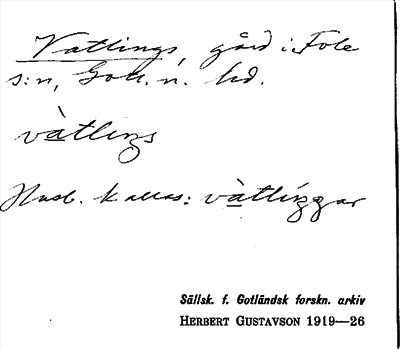 Vatlings, gård i Fole
s:n, Gotl. n. hd.
vàtlings
Husb. kallas: vàtlíŋgar
Sällsk. f. Gotländsk forskn. arkiv
HERBERT GUSTAVSON 1919—26